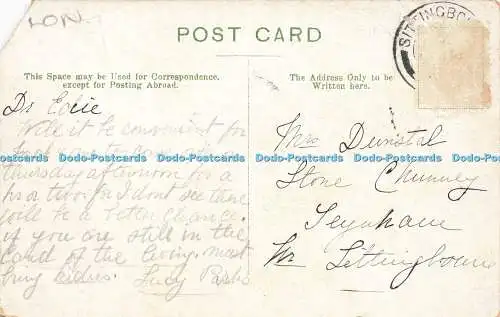 LON
POST CARD
SITTINGBO
This Space may be Used for Correspondence,
except for Posting Abroad.
The Address Only to be
Written here.
Dr Edie
Will it be convenient for
to come
thursday afternoon for a
hr or two for I dont see there
will be a chance.
if you are still in the
Land of the living. must
hurry Lucy
Mrs Dunstal
Stone Chimney
Teynham
Nr Sittingbourne
Postcards Postcards Postcards Postcards Postcards Postcards